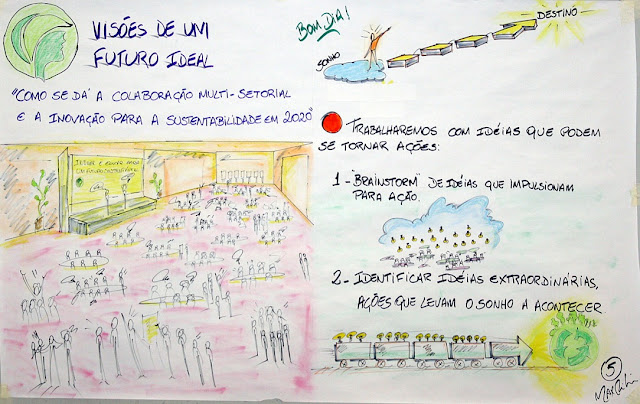 VISÕES DE UM
FUTURO IDEAL
"COMO SE DÁ A COLABORAÇÃO MULTI-SETORIAL
E A INOVAÇÃO PARA A SUSTENTABILIDADE EM 2020"
BOM DIA!
SONHO
DESTINO
TRABALHAREMOS COM IDÉIAS QUE PODEM
SE TORNAR AÇÕES:
1- "BRAINSTORM" DE IDÉIAS QUE IMPULSIONAM
PARA AÇÃO.
2- IDENTIFICAR IDÉIAS EXTRAORDINÁRIAS,
AÇÕES QUE LEVAM O SONHO A ACONTECER.
5